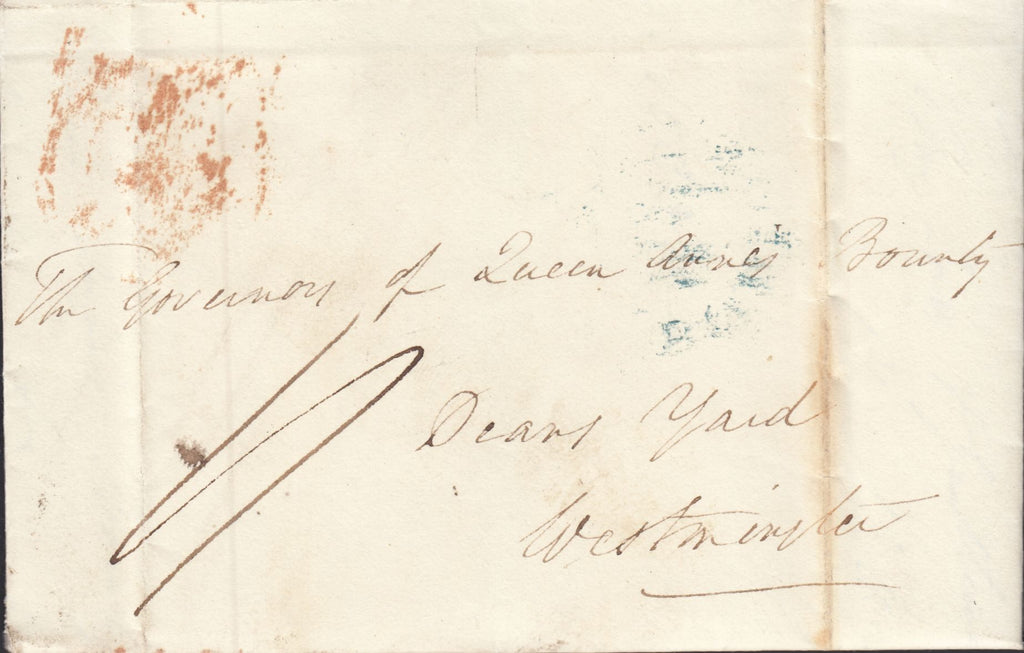 The Governors of Queen Annes Bounty
Deans Yard
Westminster